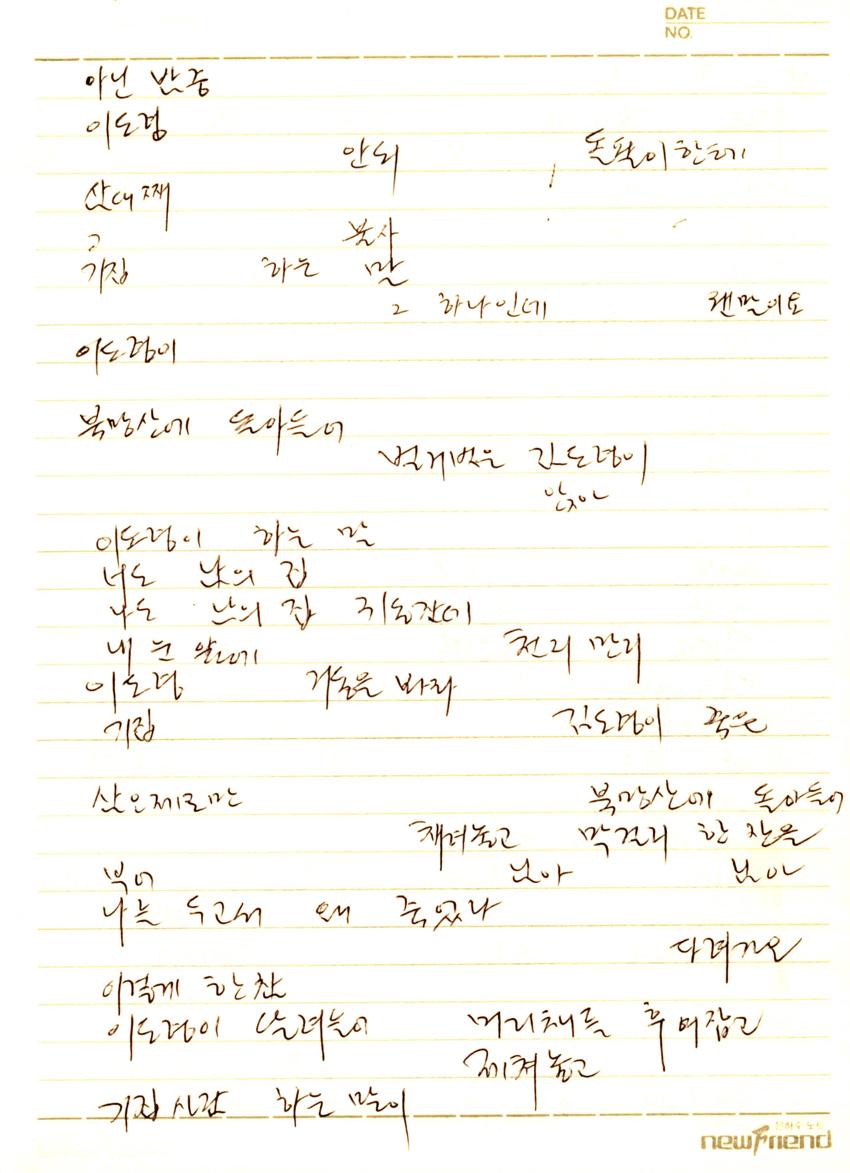 DATE
NO.
아닌 밤중
이도령
안되 돌팍이한테
삿대째
?
봉사
기집 하는 말
2 하나인데 웬말이요
이도령이
북망산에 돌아들어
벌거벗은 김도령이
앉아
이도령이 하는 말
너도 남의 집
나도 남의 집
내 눈 앞에 천리 만리
이도령 거동을 바라
기집 김도령이 죽은
산으제로만 북망산에 돌아들어
채려놓고 막걸리 한 잔을
부어 님아 님아
나는 두고서 왜 죽었나
다려가오
이렇게 한참
이도령이 달려들어 머리채를 후여잡고
제쳐놓고
기집시간 하는 말이
newfriend